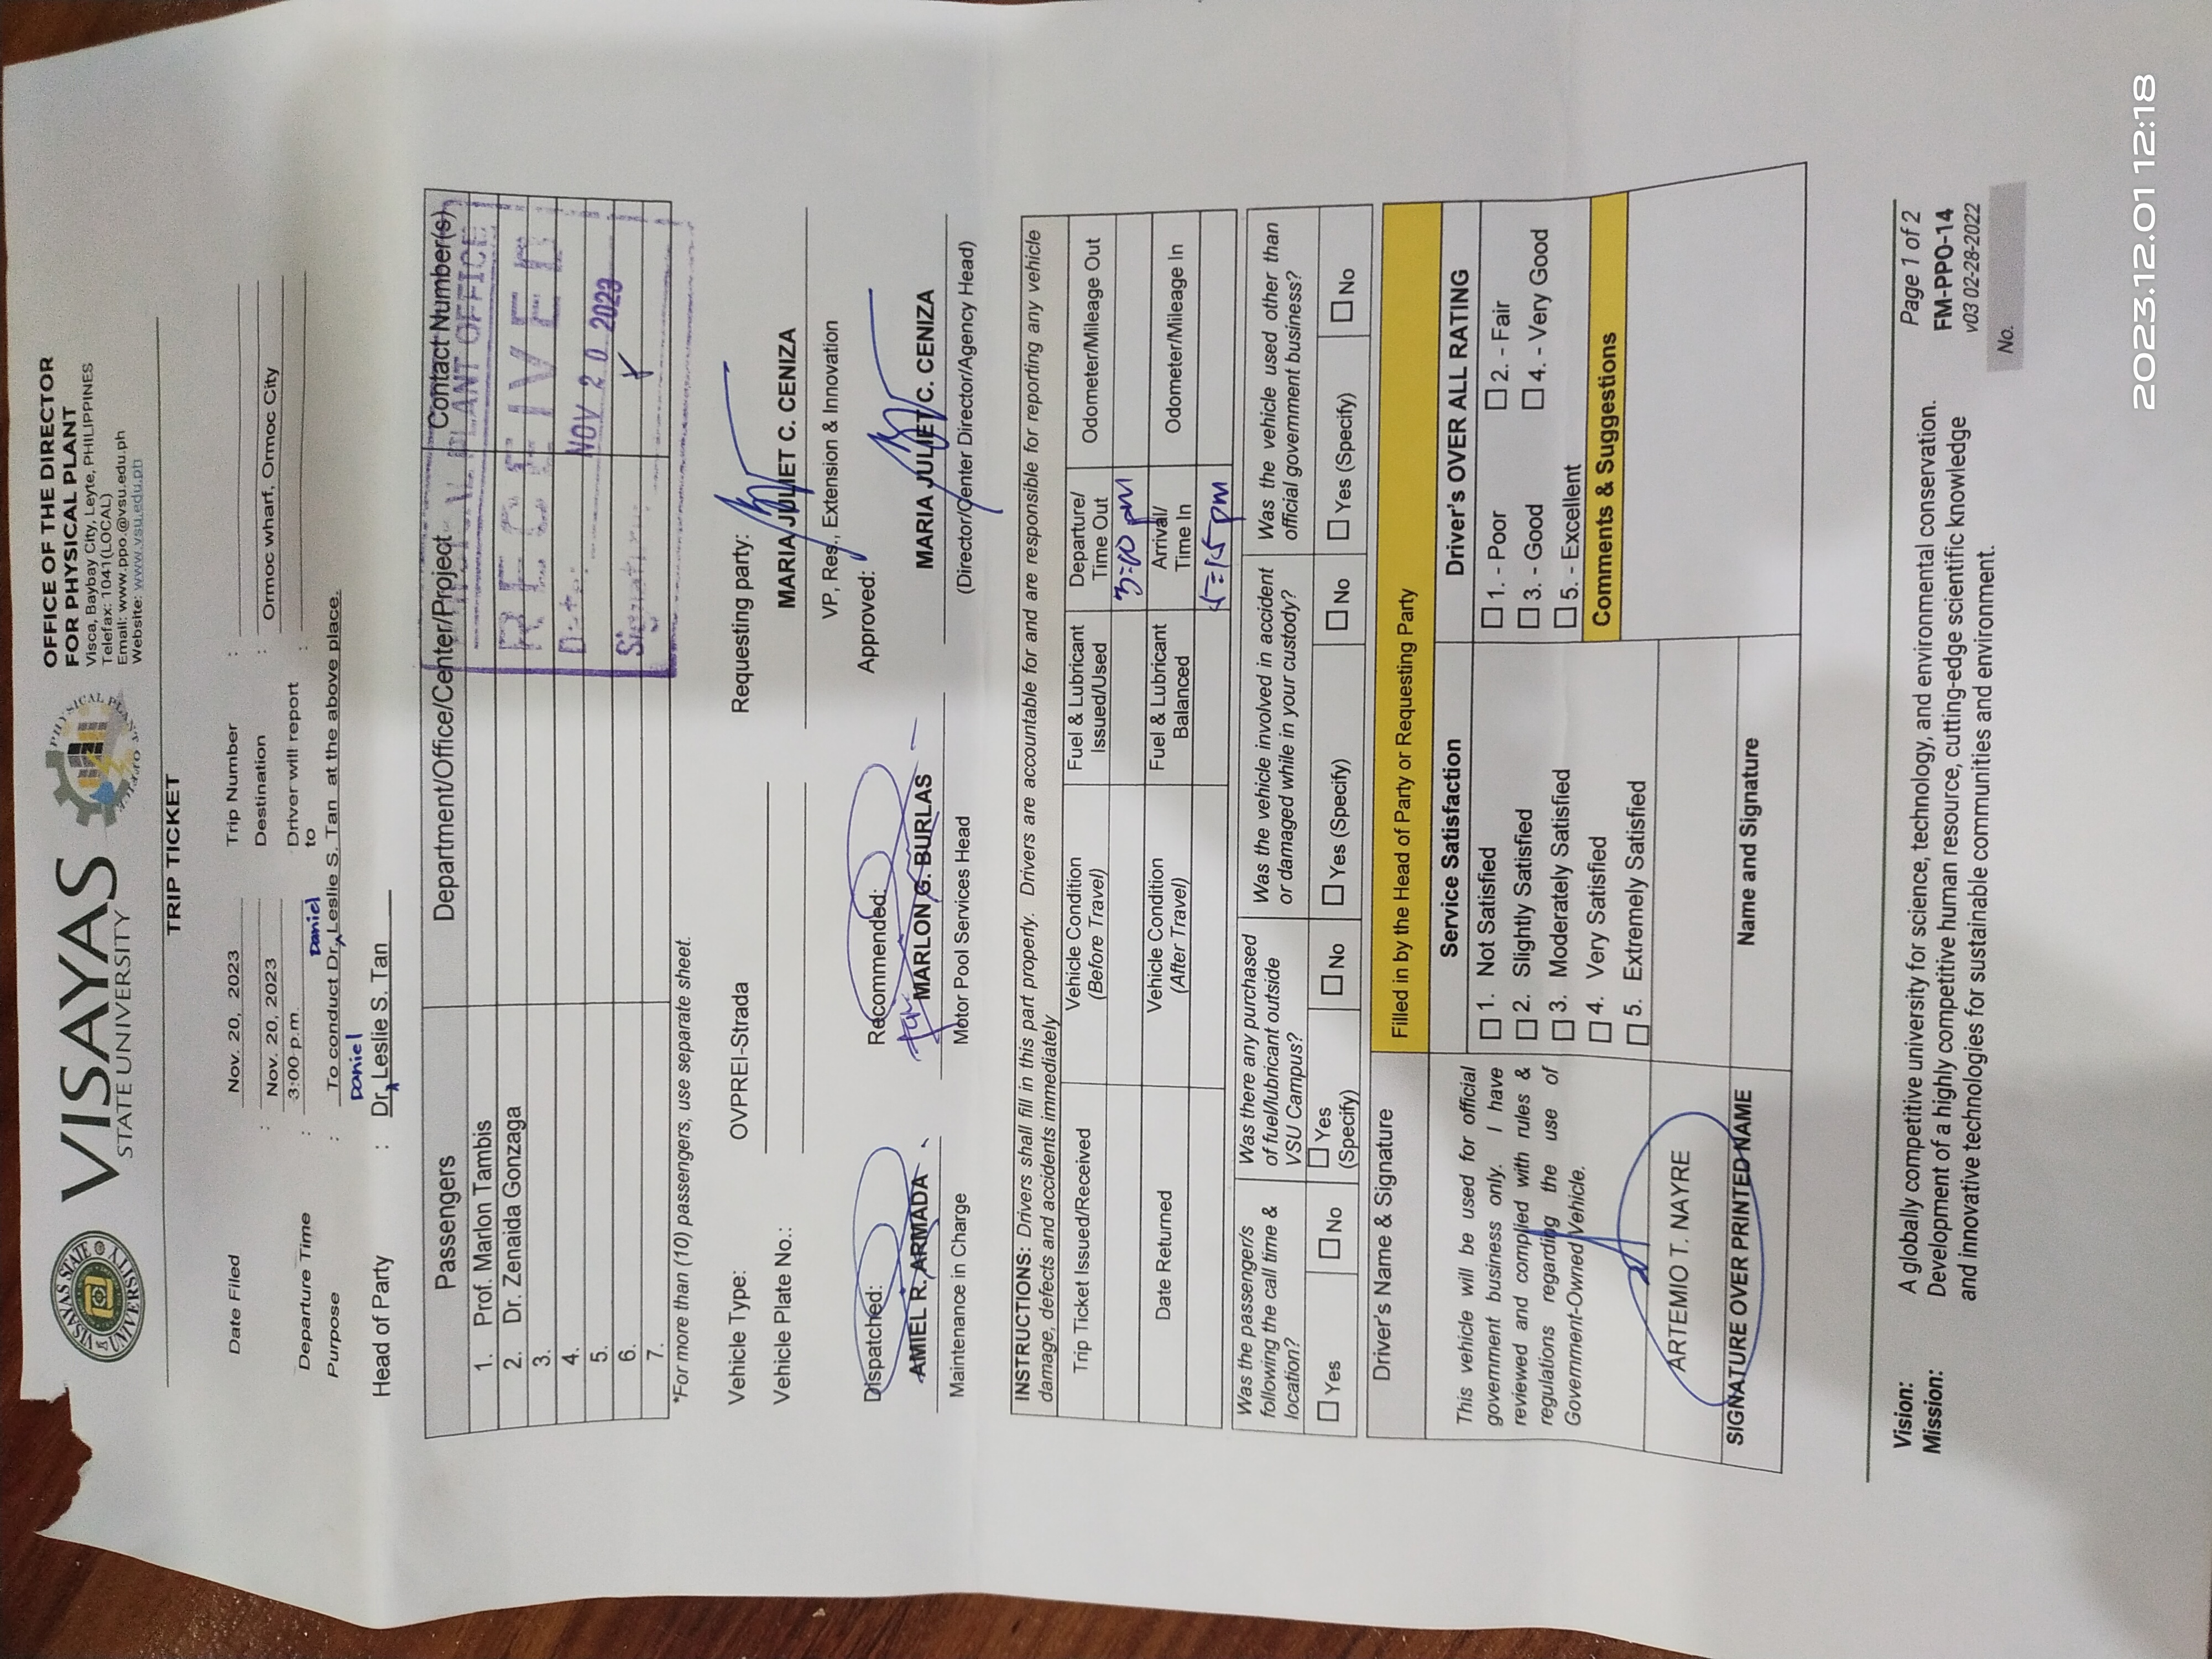 VISAYAS
STATE UNIVERSITY
OFFICE OF THE DIRECTOR
FOR PHYSICAL PLANT
Visca, Baybay City, Leyte, PHILIPPINES
Telefax: 1041(LOCAL)
Email: www.ppo.@vsu.edu.ph
Website: www.vsu.edu.ph
TRIP TICKET
Date Filed : Nov. 20, 2023 Trip Number :
Nov. 20, 2023 Destination : Ormoc wharf, Ormoc City
Departure Time : 3:00 p.m. Driver will report to :
Daniel
Purpose : To conduct Dr. Leslie S. Tan at the above place.
Daniel
Head of Party : Dr. Leslie S. Tan
Passengers Department/Office/Center/Project Contact Number(s)
1. Prof. Marlon Tambis
2. Dr. Zenaida Gonzaga
3.
4.
5.
6.
7.
PLANT OFFICE
RECEIVED
Date: NOV 20 2023
Signature:
*For more than (10) passengers, use separate sheet.
Vehicle Type: OVPREI-Strada Requesting party:
Vehicle Plate No.: MARIA JULIET C. CENIZA
VP, Res., Extension & Innovation
Dispatched: Recommended: Approved:
AMIEL R. ARMADA for MARLON G. BURLAS MARIA JULIET C. CENIZA
Maintenance in Charge Motor Pool Services Head (Director/Center Director/Agency Head)
INSTRUCTIONS: Drivers shall fill in this part properly. Drivers are accountable for and are responsible for reporting any vehicle
damage, defects and accidents immediately
Trip Ticket Issued/Received Vehicle Condition (Before Travel) Fuel & Lubricant Issued/Used Departure/ Time Out Odometer/Mileage Out
3:00 pm
Date Returned Vehicle Condition (After Travel) Fuel & Lubricant Balanced Arrival/ Time In Odometer/Mileage In
5:15 pm
Was the passenger/s following the call time & location? Was there any purchased of fuel/lubricant outside VSU Campus? Was the vehicle involved in accident or damaged while in your custody? Was the vehicle used other than official government business?
☐ Yes ☐ No ☐ Yes (Specify) ☐ No ☐ Yes (Specify) ☐ No ☐ Yes (Specify) ☐ No
Driver's Name & Signature Filled in by the Head of Party or Requesting Party
This vehicle will be used for official
government business only. I have
reviewed and complied with rules &
regulations regarding the use of
Government-Owned Vehicle.
Service Satisfaction
☐ 1. Not Satisfied
☐ 2. Slightly Satisfied
☐ 3. Moderately Satisfied
☐ 4. Very Satisfied
☐ 5. Extremely Satisfied
Driver's OVER ALL RATING
☐ 1. - Poor ☐ 2. - Fair
☐ 3. - Good ☐ 4. - Very Good
☐ 5. - Excellent
Comments & Suggestions
ARTEMIO T. NAYRE
SIGNATURE OVER PRINTED NAME Name and Signature
Vision: A globally competitive university for science, technology, and environmental conservation.
Mission: Development of a highly competitive human resource, cutting-edge scientific knowledge
and innovative technologies for sustainable communities and environment.
Page 1 of 2
FM-PPO-14
v03 02-28-2022
No.
2023.12.01 12:18